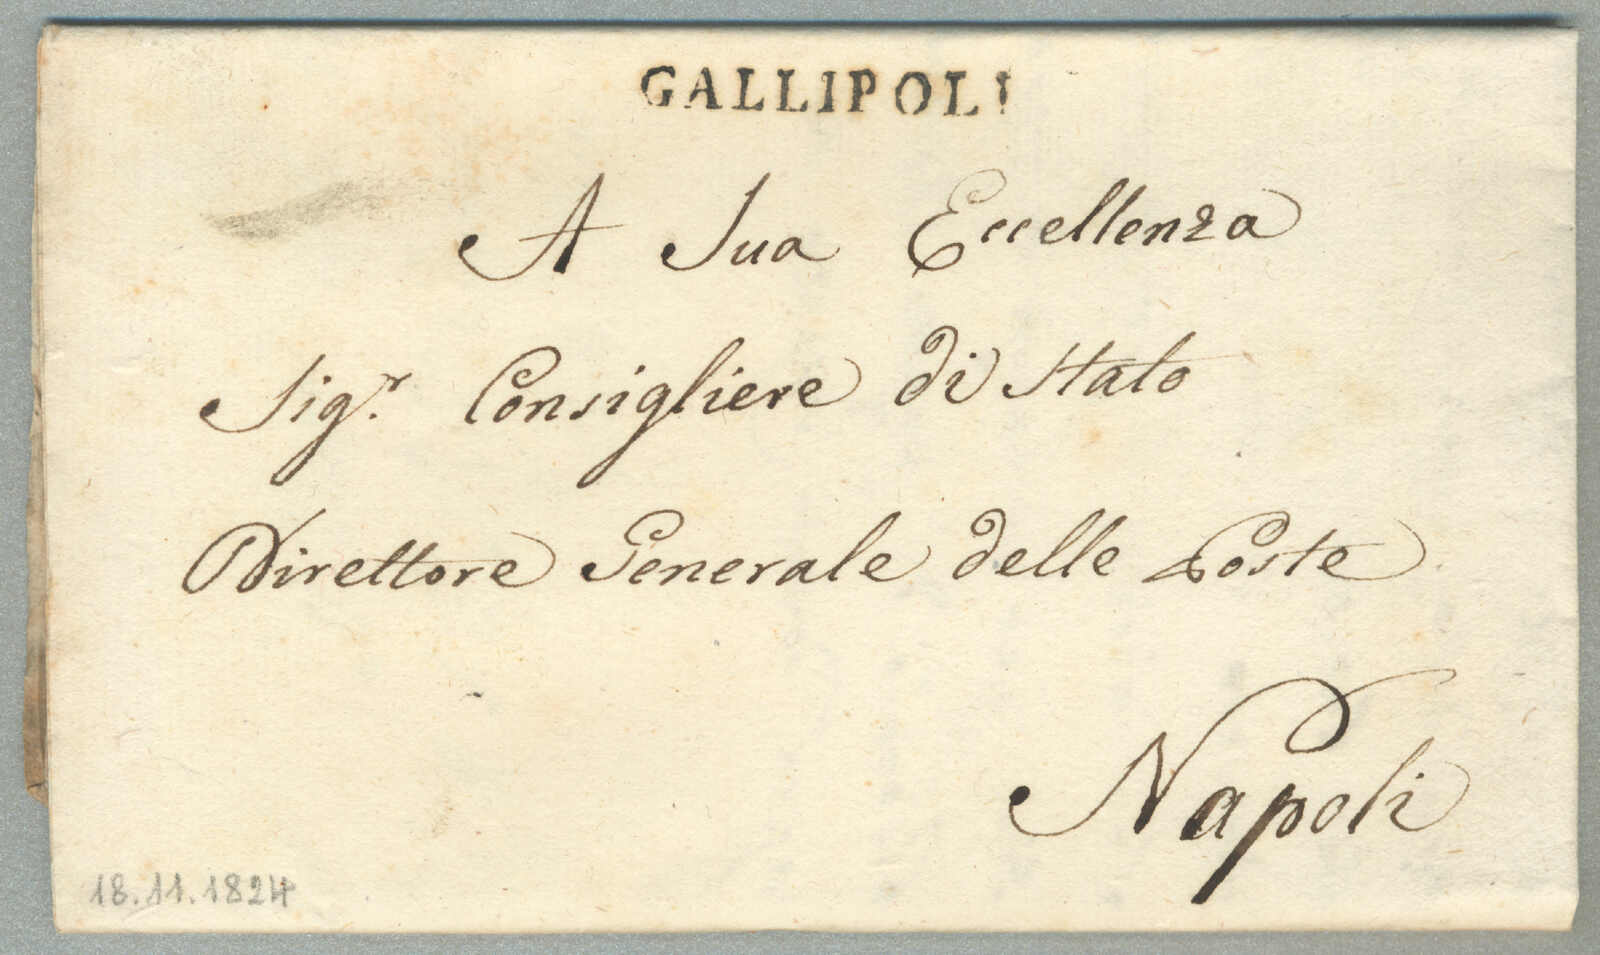 GALLIPOLI
A Sua Eccellenza
Sig.r Consigliere di Stato
Direttore Generale delle Poste
Napoli
18.11.1824